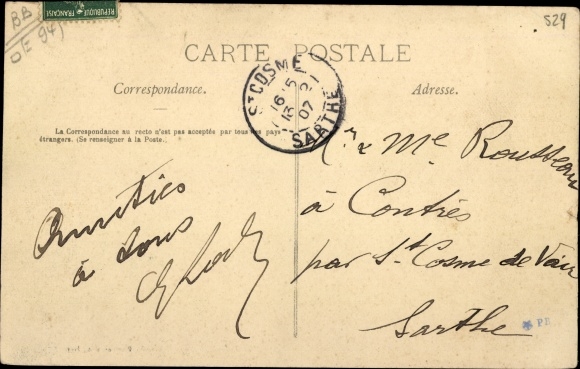 BB
OE 94)
RÉPUBLIQUE FRANÇAISE
529
CARTE POSTALE
Correspondance.
Adresse.
La Correspondance au recto n'est pas acceptée par tous les pays
étrangers. (Se renseigner à la Poste.)
ST COSME
16 15
21
07
SARTHE
Amitiés
à tous
Mr & Me Rousseau
à Contres
par St Cosme de Vair
Sarthe
PB